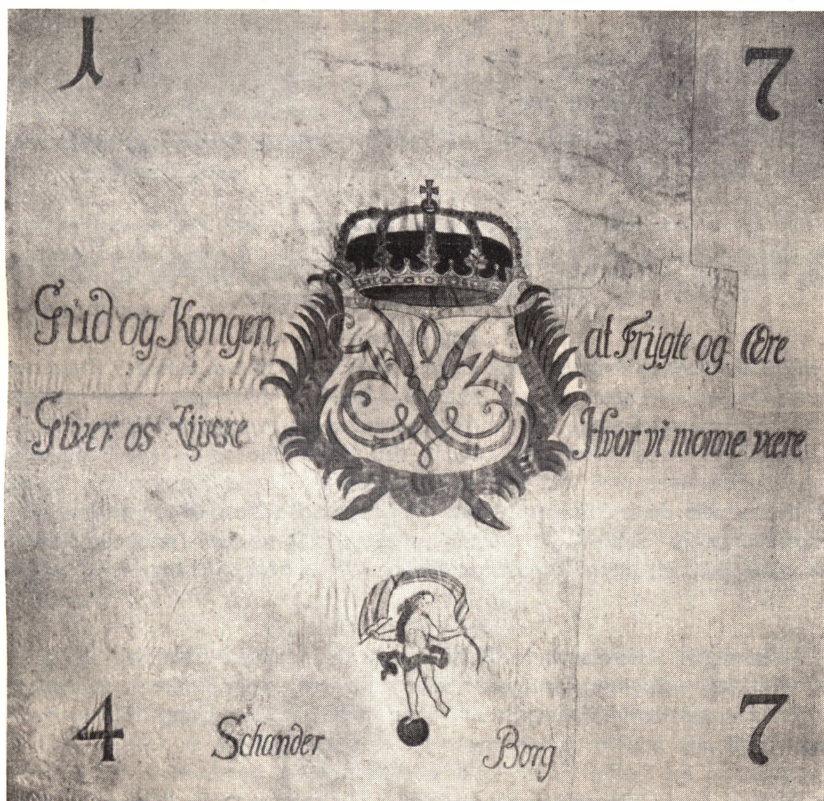 1 7
Gud og Kongen at Frygte og Ære
Giver os Lykke Hvor vi monne være
4 7
Schander Borg